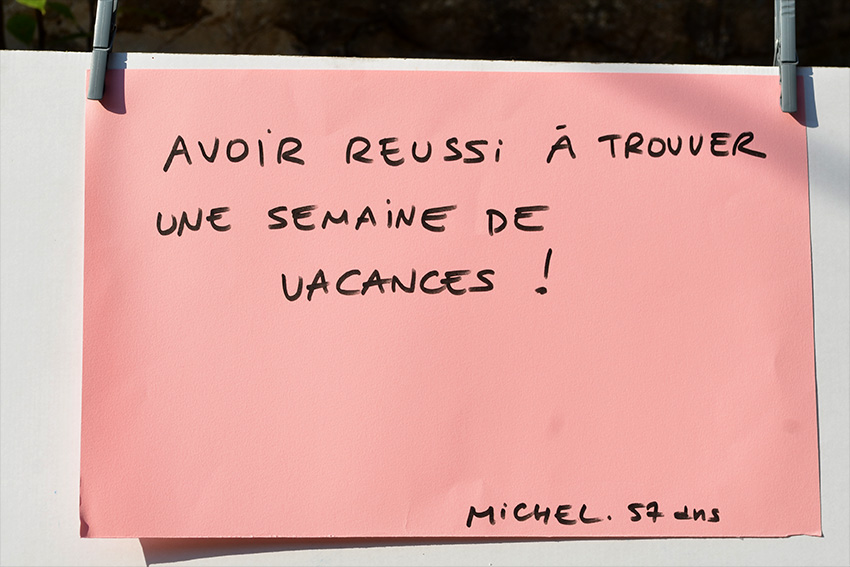 AVOIR REUSSI À TROUVER
UNE SEMAINE DE
VACANCES !
MICHEL. 57 ans